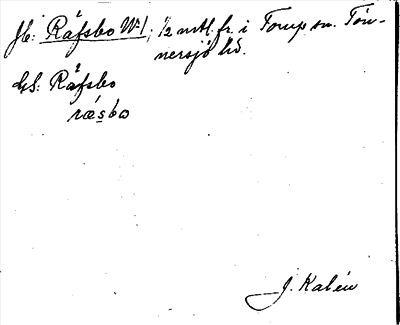 jb: Råfsbo No 1; 1/2 mtl. fr. i Torup sn. Tön-
nersjö hd.
GS: Råfsbo
ræsbo
J. Kalén